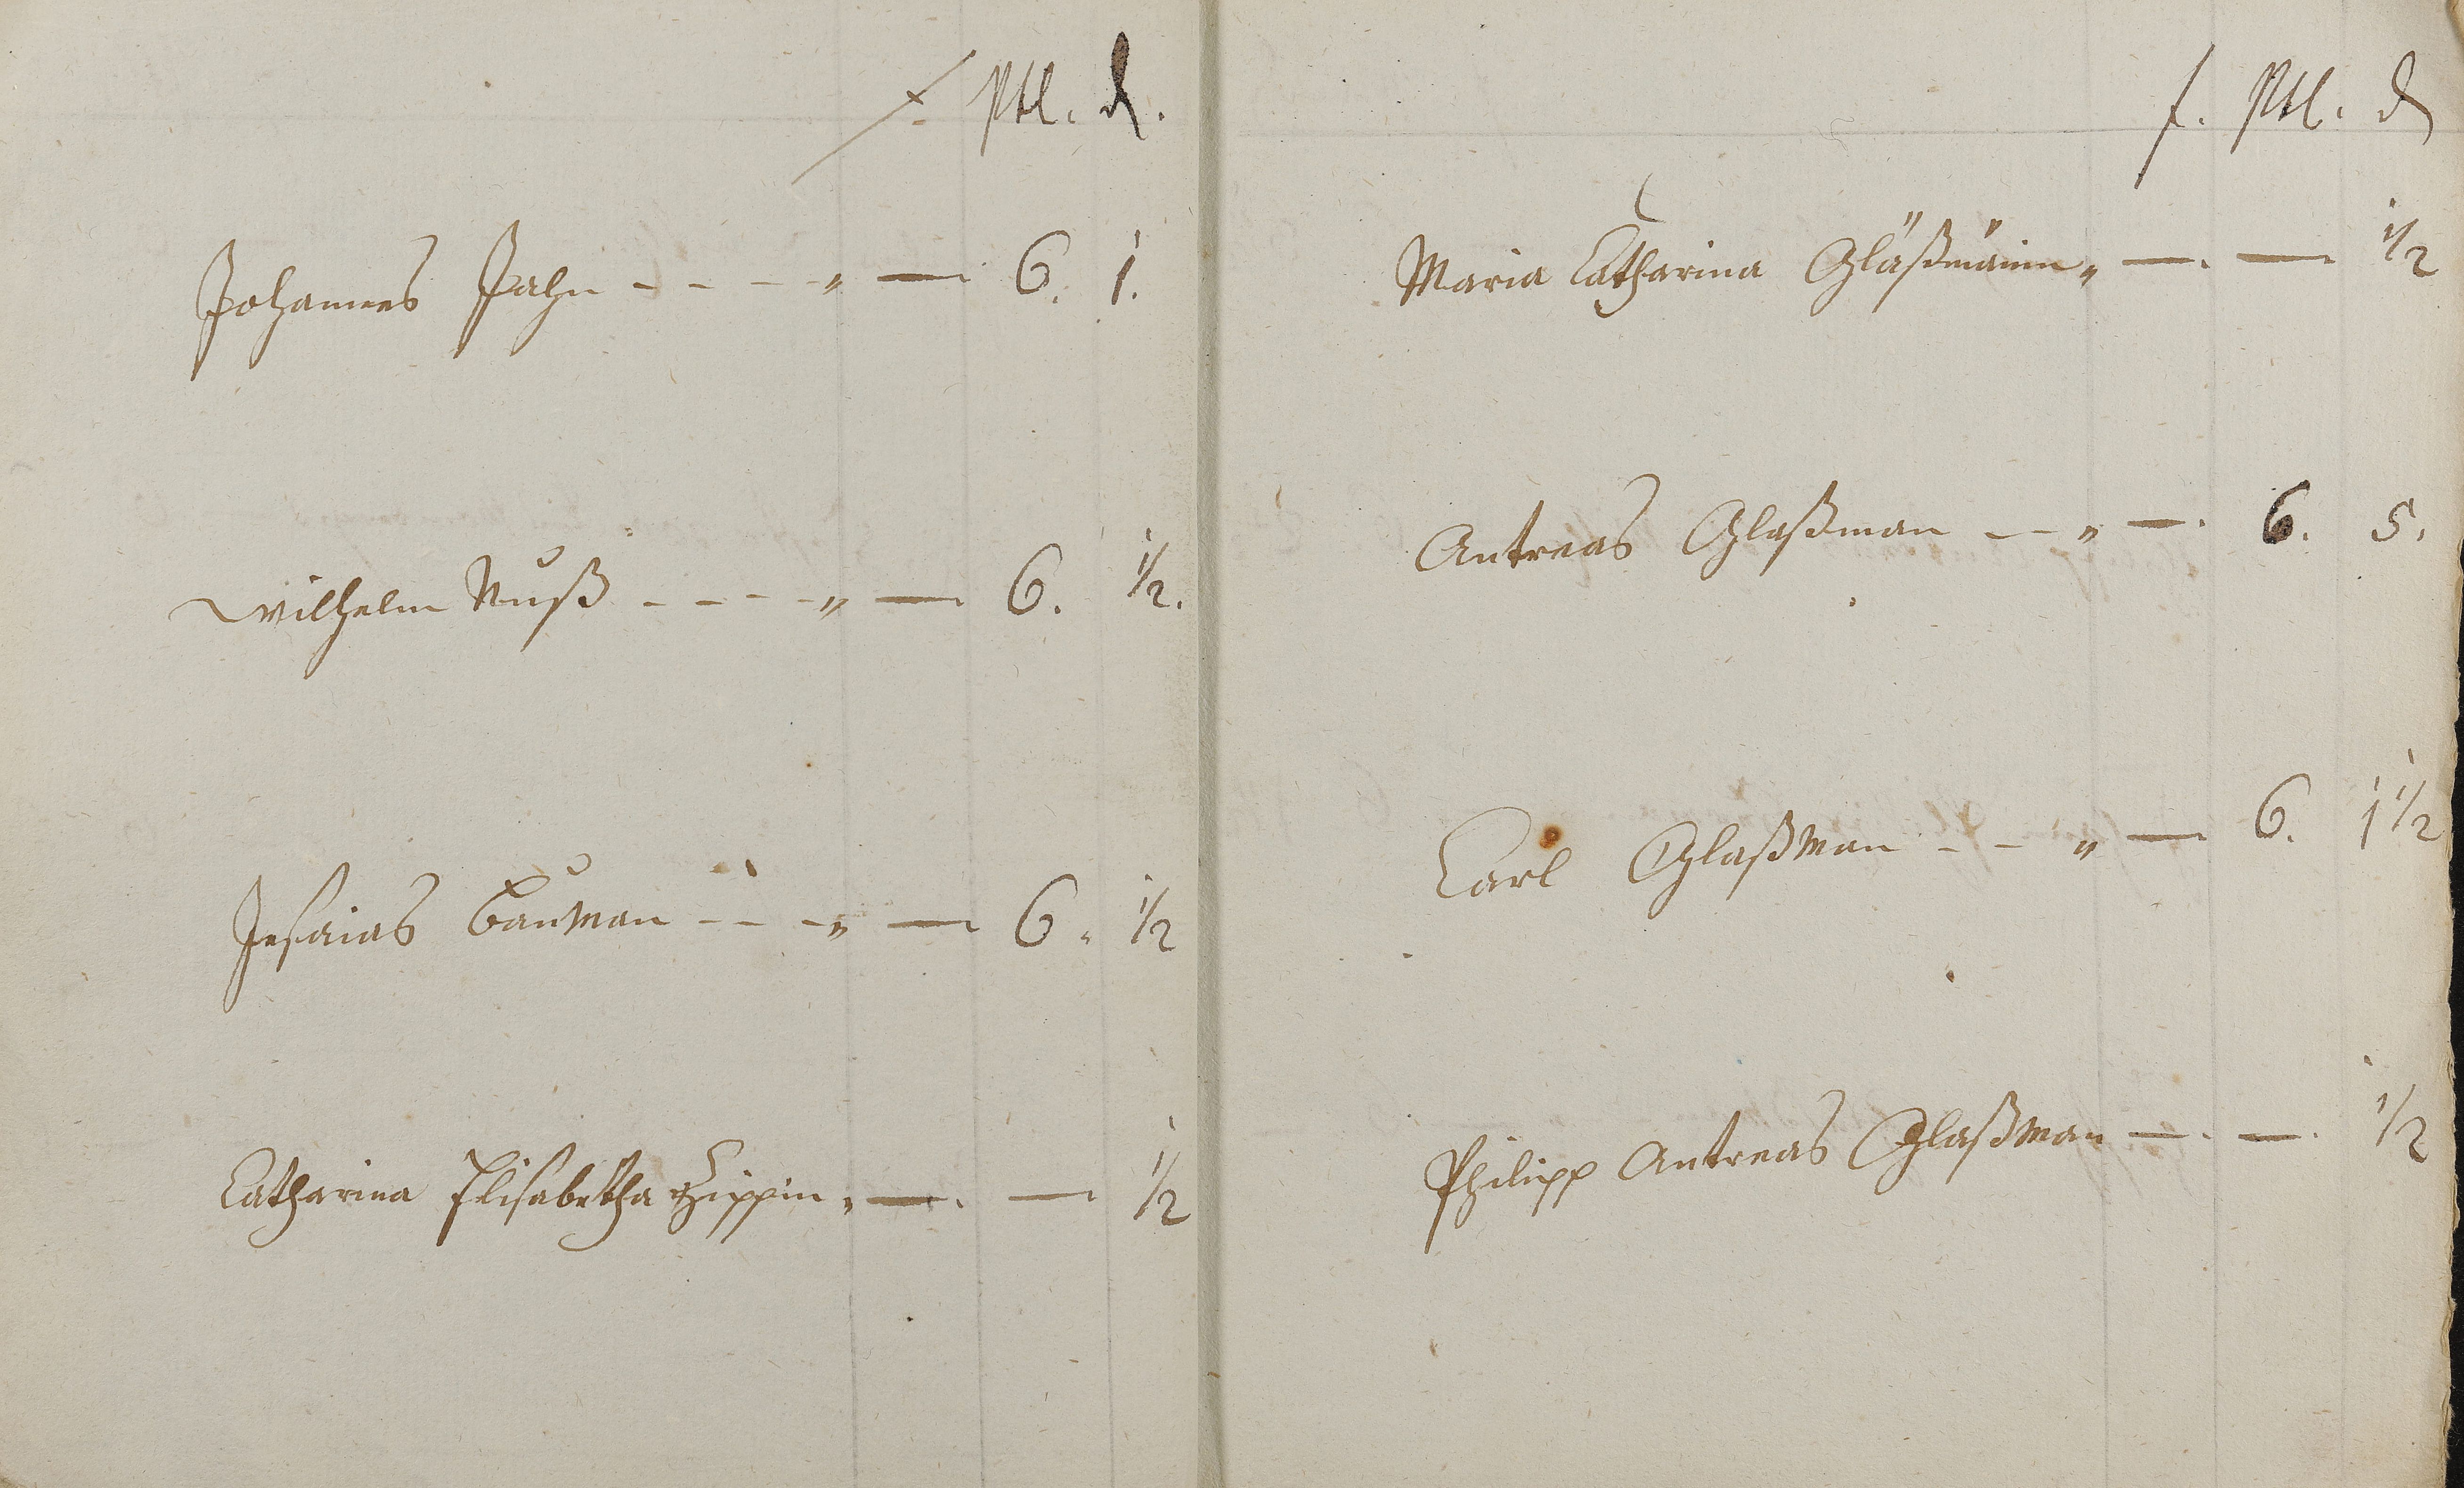 f. Ptl. d.
Johannes Jahn - - - - „ — 6. 1.
Wilhelm Nuß - - - - „ — 6. 1/2.
Jesaias Bauman - - - „ — 6. 1/2
Catharina Elisabetha Zippin „ — . — 1/2
f. Ptl. d
Maria Catharina Gläßmänin „ — . — 1/2
Antreas Glaßman - - „ — . 6. 5.
Carl Glaßman - - „ — 6. 1 1/2
Philipp Antreas Glaßman — . — . 1/2